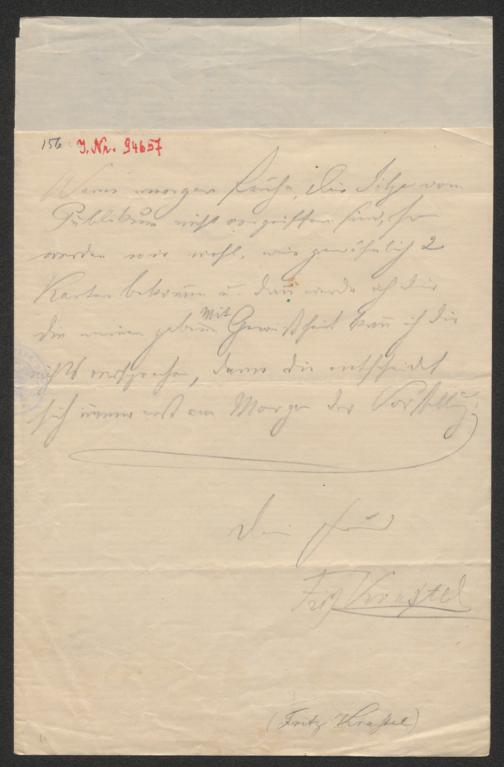 156 J. Nr. 94657
Wenn morgen früh die Sitze vom
Publikum nicht vergriffen sind, so
werden wir wohl, wie gewöhnlich 2
Karten bekommen u. dann werde ich dir
Mit
die meinen geben Gewißheit kann ich dir
nichts versprechen, denn die entscheidet
sich immer erst am Morgen der Vorstellung.
Dein Freund
Fritz Krastel
(Fritz Krastel)